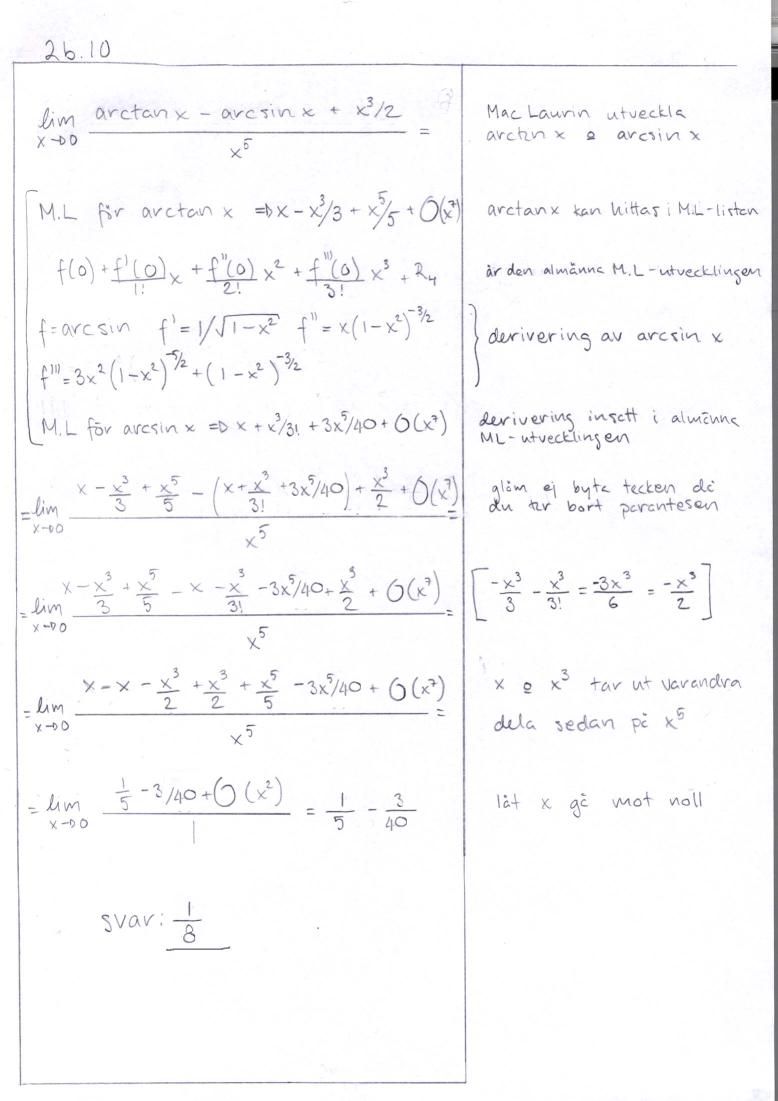 2b.10
lim x→0 (arctan x - arcsin x + x³/2) / x⁵ =
Mac Laurin utveckla
arctan x o arcsin x
M.L för arctan x ⇒ x - x³/3 + x⁵/5 + O(x⁷)
arctanx kan hittas i M.L-listen
f(0) + f'(0)/1! x + f''(0)/2! x² + f'''(0)/3! x³ + R₄
är den almänna M.L-utvecklingen
f=arcsin f' = 1/√(1-x²) f'' = x(1-x²)^(-3/2)
f''' = 3x²(1-x²)^(-5/2) + (1-x²)^(-3/2)
derivering av arcsin x
M.L för arcsin x ⇒ x + x³/3! + 3x⁵/40 + O(x⁷)
derivering insatt i almänna
ML-utvecklingen
= lim x→0 (x - x³/3 + x⁵/5 - (x + x³/3! + 3x⁵/40) + x³/2 + O(x⁷)) / x⁵ =
glöm ej byta tecken då
du tar bort parantesen
= lim x→0 (x - x³/3 + x⁵/5 - x - x³/3! - 3x⁵/40 + x³/2 + O(x⁷)) / x⁵ =
[-x³/3 - x³/3! = -3x³/6 = -x³/2]
= lim x→0 (x - x - x³/2 + x³/2 + x⁵/5 - 3x⁵/40 + O(x⁷)) / x⁵ =
x o x³ tar ut varandra
dela sedan på x⁵
= lim x→0 (1/5 - 3/40 + O(x²)) / 1 = 1/5 - 3/40
låt x gå mot noll
svar: 1/8